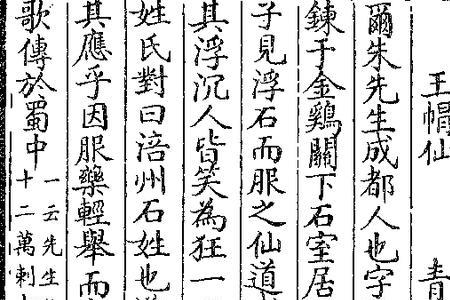 王帽仙
青
爾朱先生成都人也字
鍊于金鷄關下石室居
子見浮石而服之仙道
其浮沉人皆笑為狂一
姓氏對曰涪州石姓也
其應乎因服藥輕舉而
歌傳於蜀中
一云先生
十二萬剌